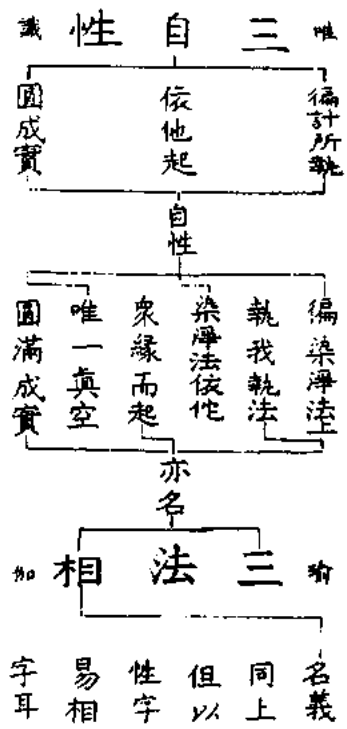 唯三自性識
徧計所執
依他起
圓成實
自性
徧染淨法上
執我執法
染淨法依佗
衆緣而起
唯一眞空
圓滿成實
亦名
瑜三法相伽
名義
同上
但以
性字
易相
字耳